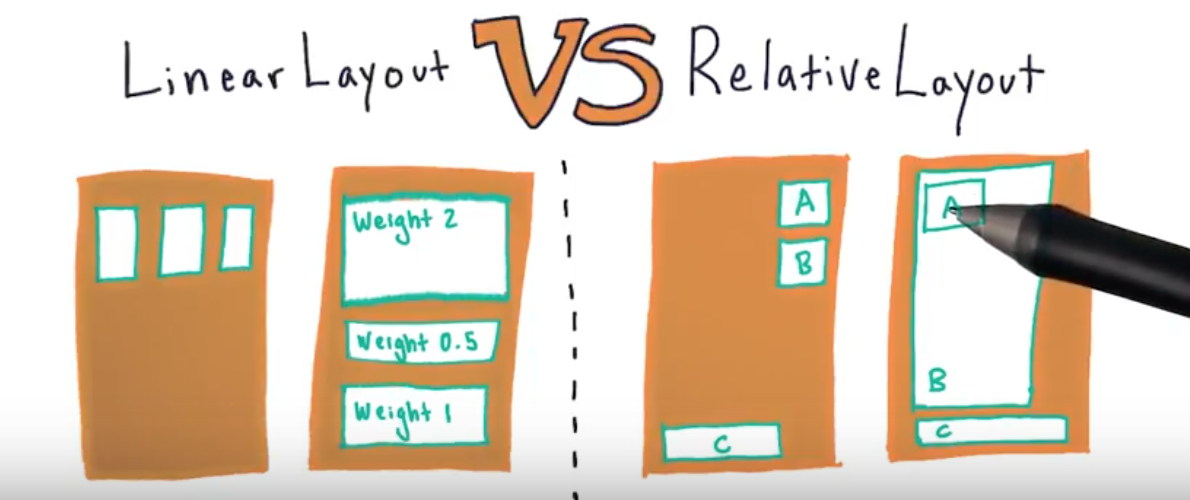 Linear Layout VS Relative Layout
Weight 2
Weight 0.5
Weight 1
A
B
C
A
B
C